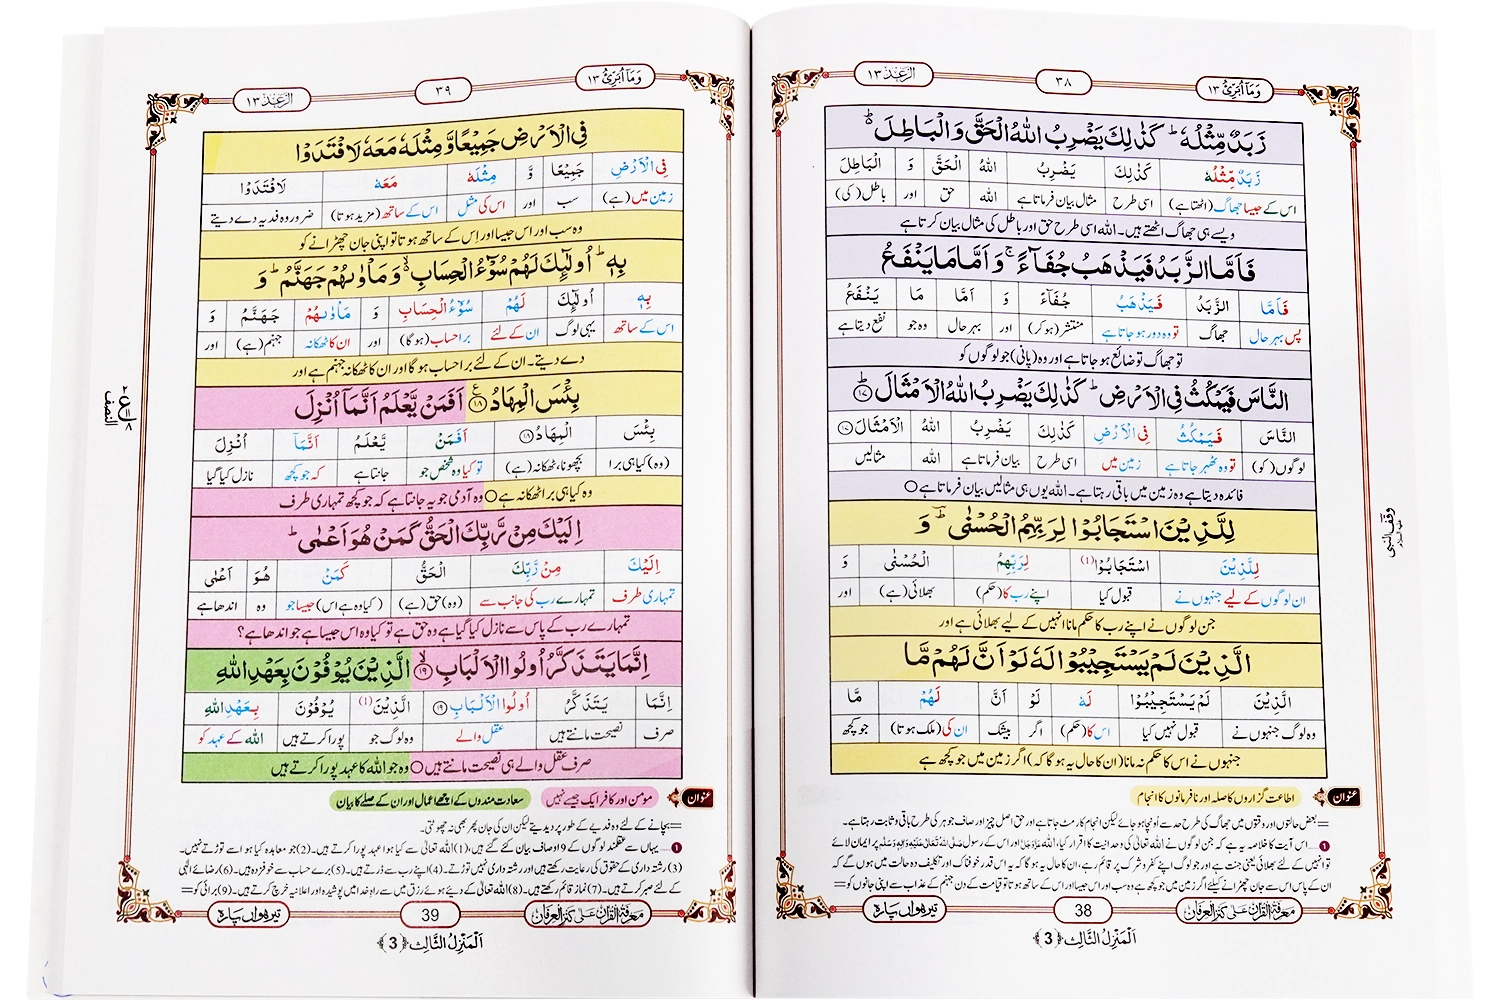 وَمَاۤ اُبَرِّئُ ١٣
٣٨
الرَّعْد ١٣
زَبَدٌ مِّثْلُهٗ ؕ كَذٰلِكَ یَضْرِبُ اللّٰهُ الْحَقَّ وَ الْبَاطِلَ ۬ؕ
زَبَدٌ مِّثْلُهٗ كَذٰلِكَ یَضْرِبُ اللّٰهُ الْحَقَّ وَ الْبَاطِلَ
اس کے جیسا جھاگ (اٹھتا ہے) اسی طرح مثال بیان فرماتا ہے اللہ حق اور باطل (کی)
ویسے ہی جھاگ اٹھتے ہیں۔ اللہ اسی طرح حق اور باطل کی مثال بیان کرتا ہے
فَاَمَّا الزَّبَدُ فَیَذْهَبُ جُفَآءً ۚ وَ اَمَّا مَا یَنْفَعُ
فَاَمَّا الزَّبَدُ فَیَذْهَبُ جُفَآءً وَ اَمَّا مَا یَنْفَعُ
پس بہر حال جھاگ تو وہ دور ہو جاتا ہے منتشر (ہوکر) اور بہر حال وہ جو نفع دیتا ہے
تو جھاگ تو ضائع ہو جاتا ہے اور وہ (پانی) جو لوگوں کو
النَّاسَ فَیَمْكُثُ فِی الْاَرْضِ ؕ كَذٰلِكَ یَضْرِبُ اللّٰهُ الْاَمْثَالَ ؕ ١٧
النَّاسَ فَیَمْكُثُ فِی الْاَرْضِ كَذٰلِكَ یَضْرِبُ اللّٰهُ الْاَمْثَالَ ١٧
لوگوں (کو) تو وہ ٹھہر جاتا ہے زمین میں اسی طرح بیان فرماتا ہے اللہ مثالیں
فائدہ دیتا ہے وہ زمین میں باقی رہتا ہے۔ اللہ یوں ہی مثالیں بیان فرماتا ہے ○
لِلَّذِیْنَ اسْتَجَابُوْا لِرَبِّهِمُ الْحُسْنٰى ؕ وَ
لِلَّذِیْنَ اسْتَجَابُوْا (1) لِرَبِّهِمُ الْحُسْنٰى وَ
ان لوگوں کے لیے جنہوں نے قبول کیا اپنے رب کا (حکم) بھلائی (ہے) اور
جن لوگوں نے اپنے رب کا حکم مانا انہیں کے لیے بھلائی ہے اور
الَّذِیْنَ لَمْ یَسْتَجِیْبُوْا لَهٗ لَوْ اَنَّ لَهُمْ مَّا
الَّذِیْنَ لَمْ یَسْتَجِیْبُوْا لَهٗ لَوْ اَنَّ لَهُمْ مَّا
وہ لوگ جنہوں نے قبول نہیں کیا اس کا (حکم) اگر بیشک ان کی (ملک ہوتا) جو کچھ
جنہوں نے اس کا حکم نہ مانا (ان کا حال یہ ہوگا کہ) اگر زمین میں جو کچھ ہے
عنوان اطاعت گزاروں کا صلہ اور نافرمانوں کا انجام
بعض حالتوں اور وقتوں میں جھاگ کی طرح حد سے اونچا ہو جائے لیکن انجام کار مٹ جاتا ہے اور حق اصل چیز اور صاف جوہر کی طرح باقی و ثابت رہتا ہے۔
1 .... اس آیت کا خلاصہ یہ ہے کہ جن لوگوں نے اللہ تعالیٰ کی وحدانیت کا اقرار کیا، اللہ عزوجل اور اس کے رسول صلی اللہ تعالیٰ علیہ والہ وسلم پر ایمان لائے
تو انہیں کے لئے بھلائی یعنی جنت ہے اور جو لوگ اپنے کفر و شرک پر قائم رہے، ان کا حال یہ ہوگا کہ یہ اس قدر خوفناک اور تکلیف دہ حالت میں ہوں گے کہ
ان کے پاس اس سے جان چھڑانے کیلئے اگر زمین میں جو کچھ ہے وہ سب اور اس جیسا اور اس کے ساتھ ہوتا تو قیامت کے دن جہنم کے عذاب سے اپنی جانوں کو
معرفۃ القرآن علی کنز العرفان
38
تیرھواں پارہ
اَلْمَنْزِلُ الثَّالِث ﴿3﴾
وقف النبی علیہ السلام
وَمَاۤ اُبَرِّئُ ١٣
٣٩
الرَّعْد ١٣
فِی الْاَرْضِ جَمِیْعًا وَّ مِثْلَهٗ مَعَهٗ لَافْتَدَوْا
فِی الْاَرْضِ جَمِیْعًا وَّ مِثْلَهٗ مَعَهٗ لَافْتَدَوْا
زمین میں (ہے) سب اور اس کی مثل اس کے ساتھ (مزید ہوتا) ضرور وہ فدیہ دے دیتے
وہ سب اور اس جیسا اور اِس کے ساتھ ہوتا تو اپنی جان چھڑانے کو
بِهٖ ؕ اُولٰٓىٕكَ لَهُمْ سُوْٓءُ الْحِسَابِ ۙ۬ وَ مَاْوٰىهُمْ جَهَنَّمُ ؕ وَ
بِهٖ اُولٰٓىٕكَ لَهُمْ سُوْٓءُ الْحِسَابِ وَ مَاْوٰىهُمْ جَهَنَّمُ وَ
اس کے ساتھ یہی لوگ ان کے لئے برا حساب (ہوگا) اور ان کا ٹھکانہ جہنم (ہے) اور
دے دیتے۔ ان کے لئے برا حساب ہوگا اور ان کا ٹھکانہ جہنم ہے اور
بِئْسَ الْمِهَادُ ١٨ ع اَفَمَنْ یَّعْلَمُ اَنَّمَاۤ اُنْزِلَ
بِئْسَ الْمِهَادُ ١٨ اَفَمَنْ یَّعْلَمُ اَنَّمَاۤ اُنْزِلَ
(وہ) کیا ہی برا بچھونا، ٹھکانہ (ہے) تو کیا وہ شخص جو جانتا ہے کہ جو کچھ نازل کیا گیا
وہ کیا ہی برا ٹھکانہ ہے ○ وہ آدمی جو یہ جانتا ہے کہ جو کچھ تمہاری طرف
اِلَیْكَ مِنْ رَّبِّكَ الْحَقُّ كَمَنْ هُوَ اَعْمٰى ؕ
اِلَیْكَ مِنْ رَّبِّكَ الْحَقُّ كَمَنْ هُوَ اَعْمٰى
تمہاری طرف تمہارے رب کی جانب سے (وہ) حق (ہے) (کیا وہ ہے اس) جیسا جو وہ اندھا ہے
تمہارے رب کے پاس سے نازل کیا گیا ہے وہ حق ہے تو کیا وہ اس جیسا ہے جو اندھا ہے؟
اِنَّمَا یَتَذَكَّرُ اُولُوا الْاَلْبَابِ ۙ ١٩ الَّذِیْنَ یُوْفُوْنَ بِعَهْدِ اللّٰهِ
اِنَّمَا یَتَذَكَّرُ اُولُوا الْاَلْبَابِ ١٩ الَّذِیْنَ (1) یُوْفُوْنَ بِعَهْدِ اللّٰهِ
صرف نصیحت مانتے ہیں عقل والے وہ لوگ جو پورا کرتے ہیں اللہ کے عہد کو
صرف عقل والے ہی نصیحت مانتے ہیں ○ وہ جو اللہ کا عہد پورا کرتے ہیں
عنوان مومن اور کافر ایک جیسے نہیں سعادت مندوں کے اچھے اعمال اور ان کے صلے کا بیان
بچانے کے لئے وہ فدیے کے طور پر دیدیتے لیکن ان کی جان پھر بھی نہ چھوٹتی۔
1 .... یہاں سے عقلمند لوگوں کے 9 اوصاف بیان کئے گئے ہیں: (1) اللہ تعالیٰ سے کیا ہوا عہد پورا کرتے ہیں۔ (2) جو معاہدہ کیا ہوا اسے توڑتے نہیں۔
(3) رشتہ داری کے حقوق کی رعایت رکھتے ہیں اور رشتہ داری نہیں توڑتے۔ (4) اپنے رب سے ڈرتے ہیں۔ (5) برے حساب سے خوفزدہ ہیں۔ (6) رضائے الٰہی
کے لئے صبر کرتے ہیں۔ (7) نماز قائم رکھتے ہیں۔ (8) اللہ تعالیٰ کے دیئے ہوئے رزق میں سے راہِ خدا میں پوشیدہ اور اعلانیہ خرچ کرتے ہیں۔ (9) برائی کو
معرفۃ القرآن علی کنز العرفان
39
تیرھواں پارہ
اَلْمَنْزِلُ الثَّالِث ﴿3﴾
النصف